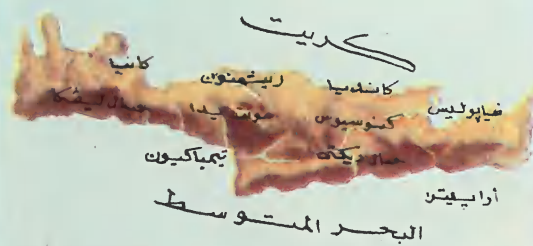 كريت
كانيا
ريثمنون
كانديا
نيابوليس
جبال ليفكا
مونت ايدا
كنوسيوس
تيمباكيون
جبال ديكتي
أرابيترا
البحر المتوسط